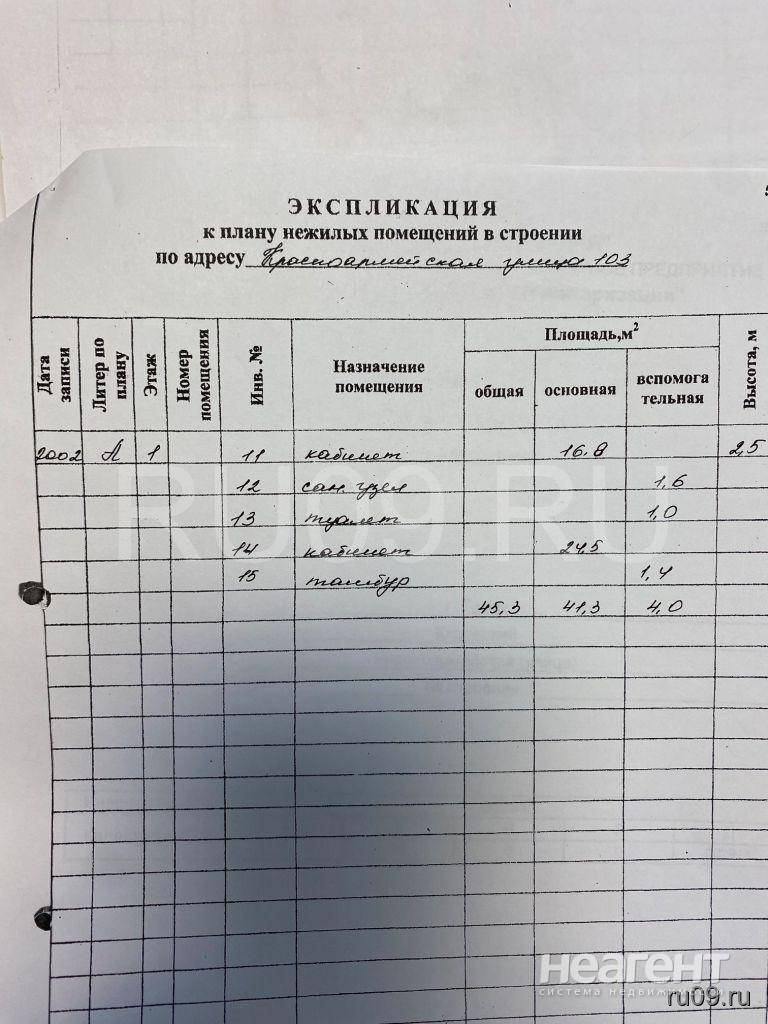 ЭКСПЛИКАЦИЯ
к плану нежилых помещений в строении
по адресу Красноармейская улица 103
Дата записи Литер по плану Этаж Номер помещения Инв. № Назначение помещения Площадь,м2 Высота, м
общая основная вспомога тельная
2002 А 1 11 кабинет 16.8 2,5
12 сан. узел 1,6
13 туалет 1,0
14 кабинет 24,5
15 тамбур 1,4
45,3 41,3 4,0
RU09.RU
неагент
система недвижимости
ru09.ru